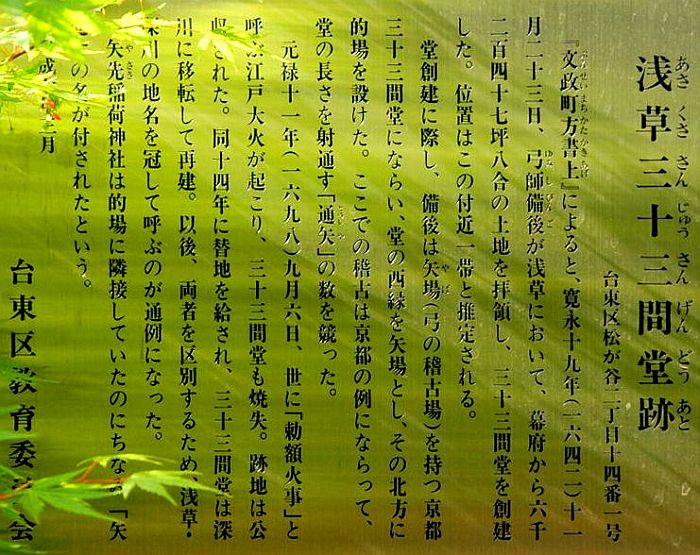 浅草三十三間堂跡
あさくささんじゅうさんげんどうあと
台東区松が谷二丁目十四番一号
『文政町方書上』によると、寛永十九年(一六四二)十一
ぶんせいまちかたかきあげ
月二十三日、弓師備後が浅草において、幕府から六千
ゆみしびんご
二百四十七坪八合の土地を拝領し、三十三間堂を創建
した。位置はこの付近一帯と推定される。
堂創建に際し、備後は矢場(弓の稽古場)を持つ京都
やば
三十三間堂にならい、堂の西縁を矢場とし、その北方に
的場を設けた。ここでの稽古は京都の例にならって、
堂の長さを射通す「通矢」の数を競った。
とおしや
元禄十一年(一六九八)九月六日、世に「勅額火事」と
呼ぶ江戸大火が起こり、三十三間堂も焼失。跡地は公
された。同十四年に替地を給され、三十三間堂は深
川に移転して再建。以後、両者を区別するため、浅草・
深川の地名を冠して呼ぶのが通例になった。
矢先稲荷神社は的場に隣接していたのにちなみ「矢
やさき
の名が付されたという。
成 年三月
台東区教育委員会